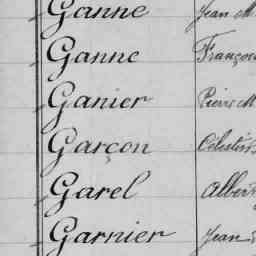 Ganne Jean M
Ganne François
Ganier Pierre M
Garçon Célestin
Garel Albert
Garnier Jean